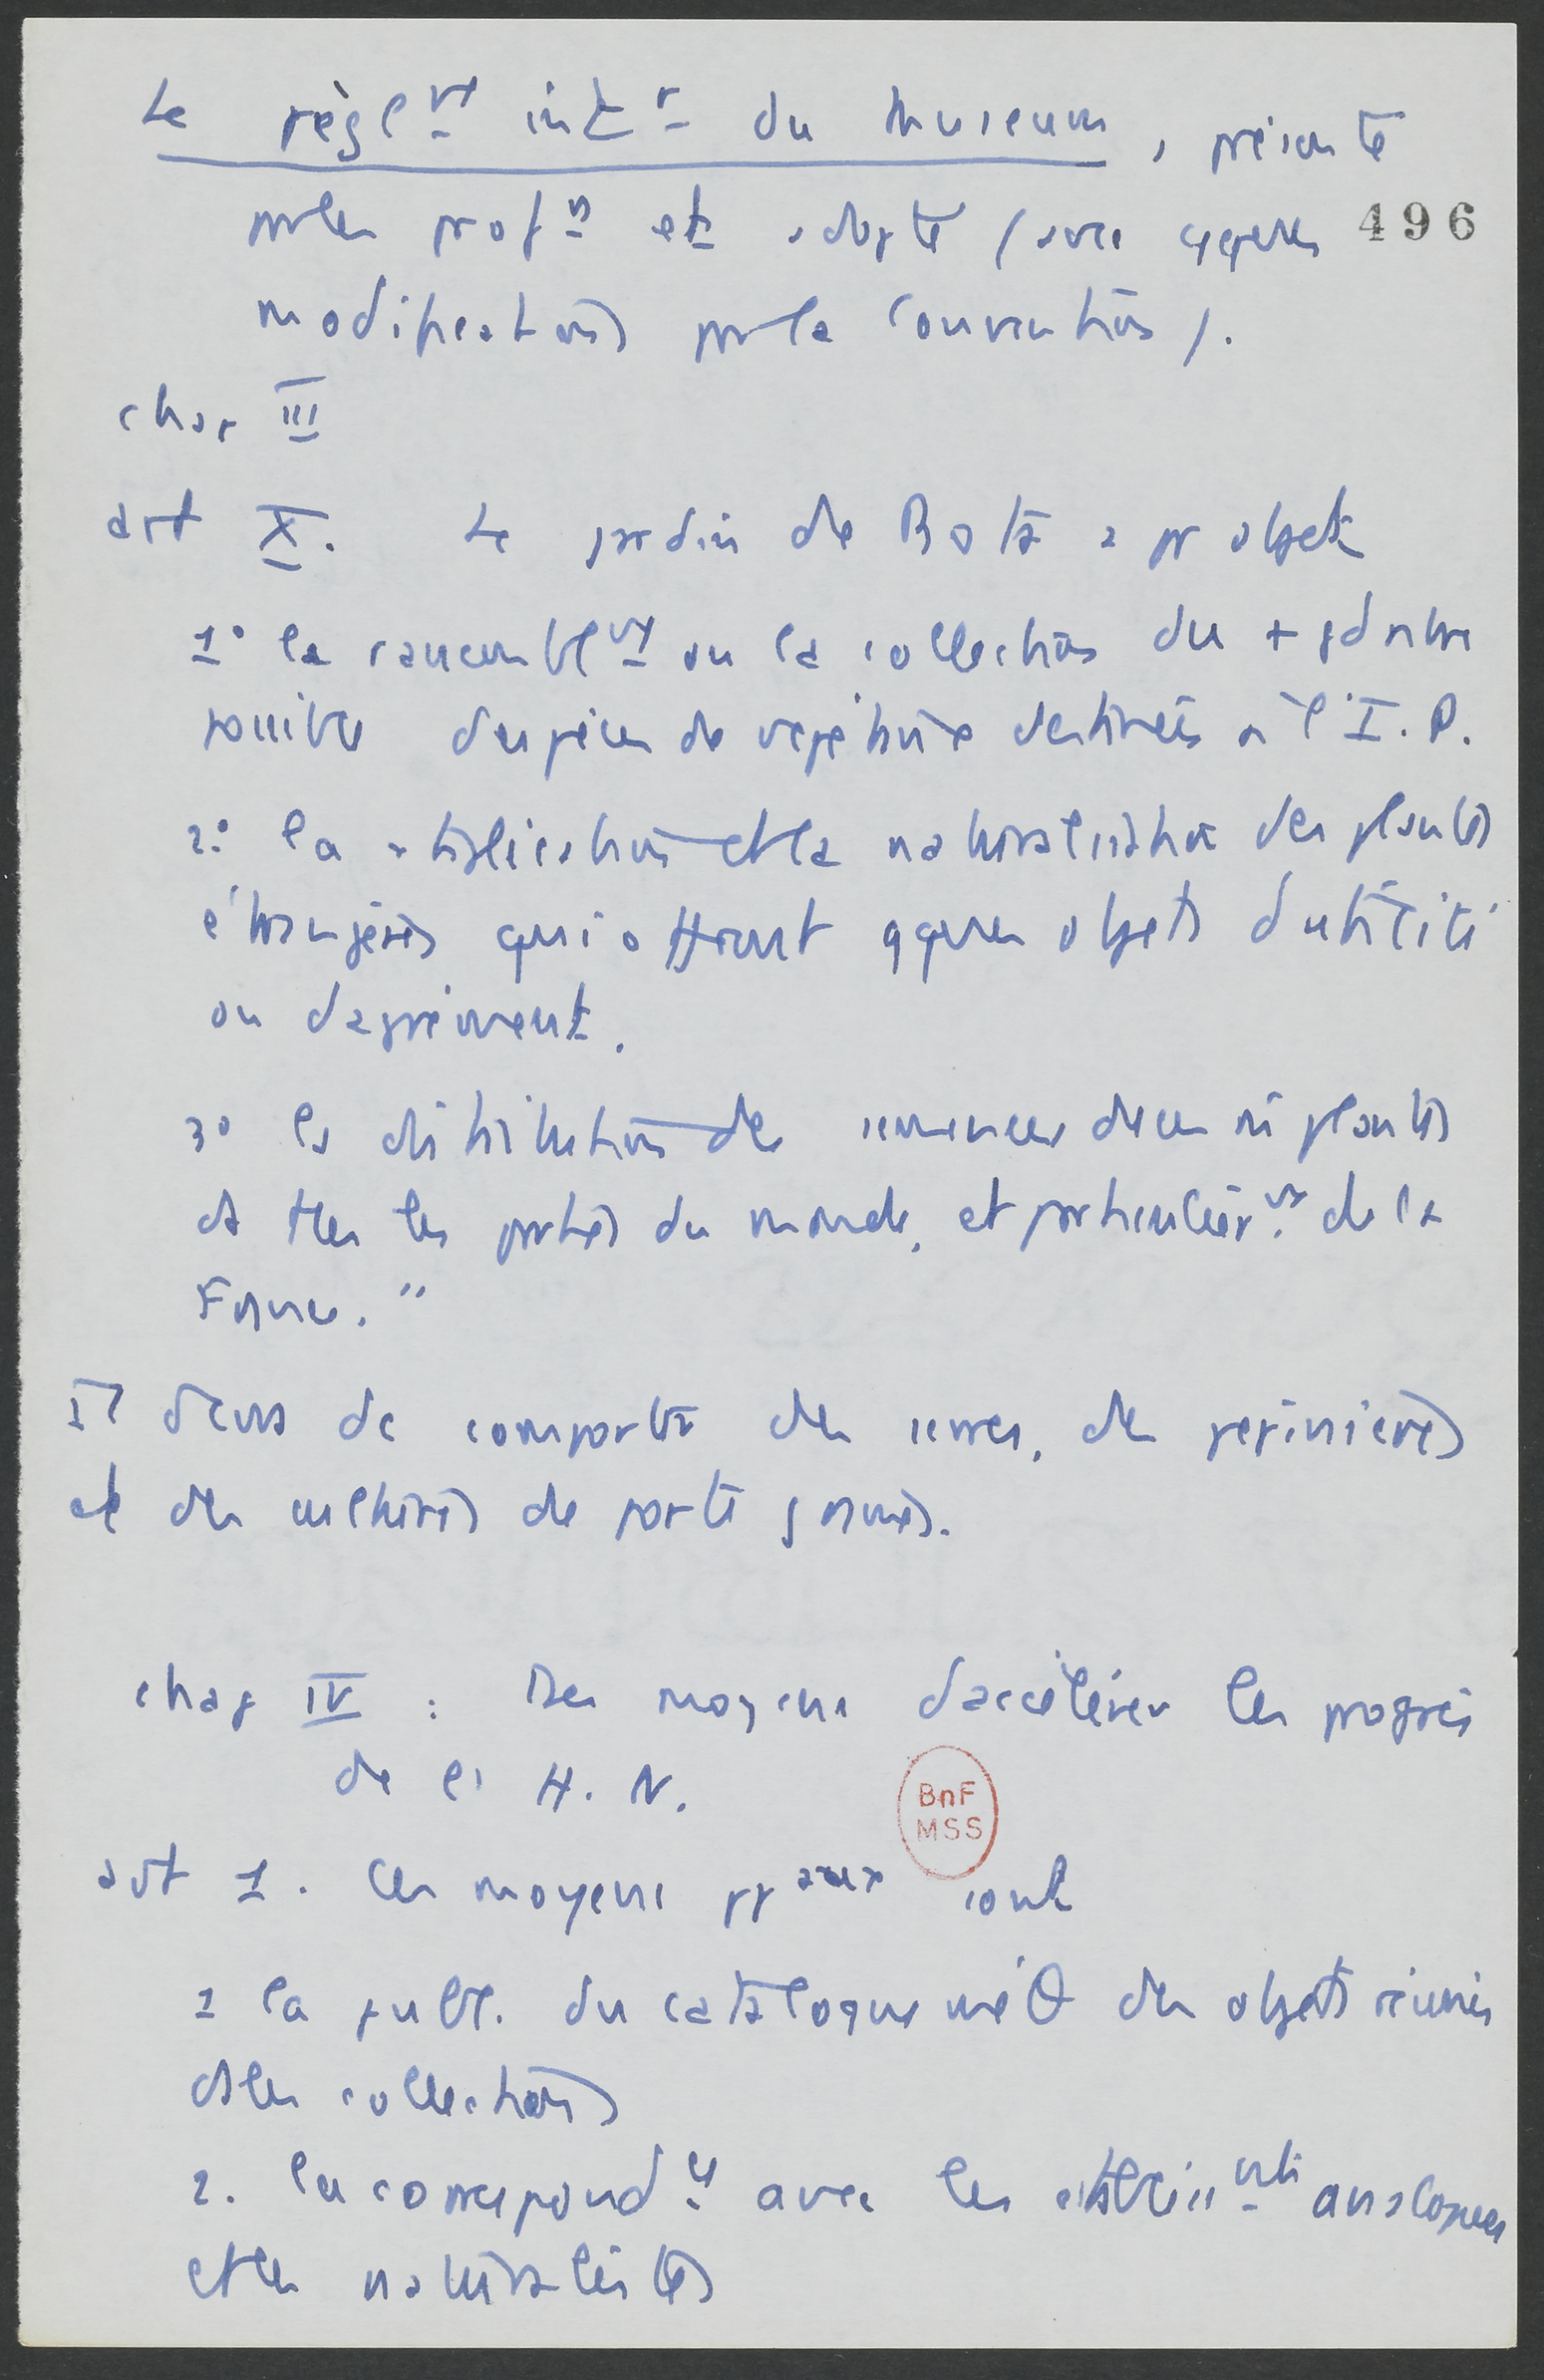 Le règl^mt int^r du Museum, présenté
par les prof^rs et adopté (avec qques 496
modifications par la Convention).
chap III
art X. Le jardin de Bota a pr objet
1° le rassembl^mt ou la collection du + gd nbre
possible d'espèces de végétaux destinés à l'I.P.
2° la multiplication et la naturalisation des plantes
étrangères qui offrent qques objets d'utilité
ou d'agrément.
3° la distribution des semences de ces plantes
ds ttes les parties du monde, et particulièr^mt de la
France."
Il devra de comporter des serres, des pépinières
et des cultures de porte graines.
chap IV : Des moyens d'accélérer les progrès
de l'H.N.
art 1. Ces moyens pp^aux sont
1 la publ. du catalogue méθ des objets réunis
ds les collections
2. la correspond^ce avec les établiss^mts analogues
et les naturalistes
BnF
MSS